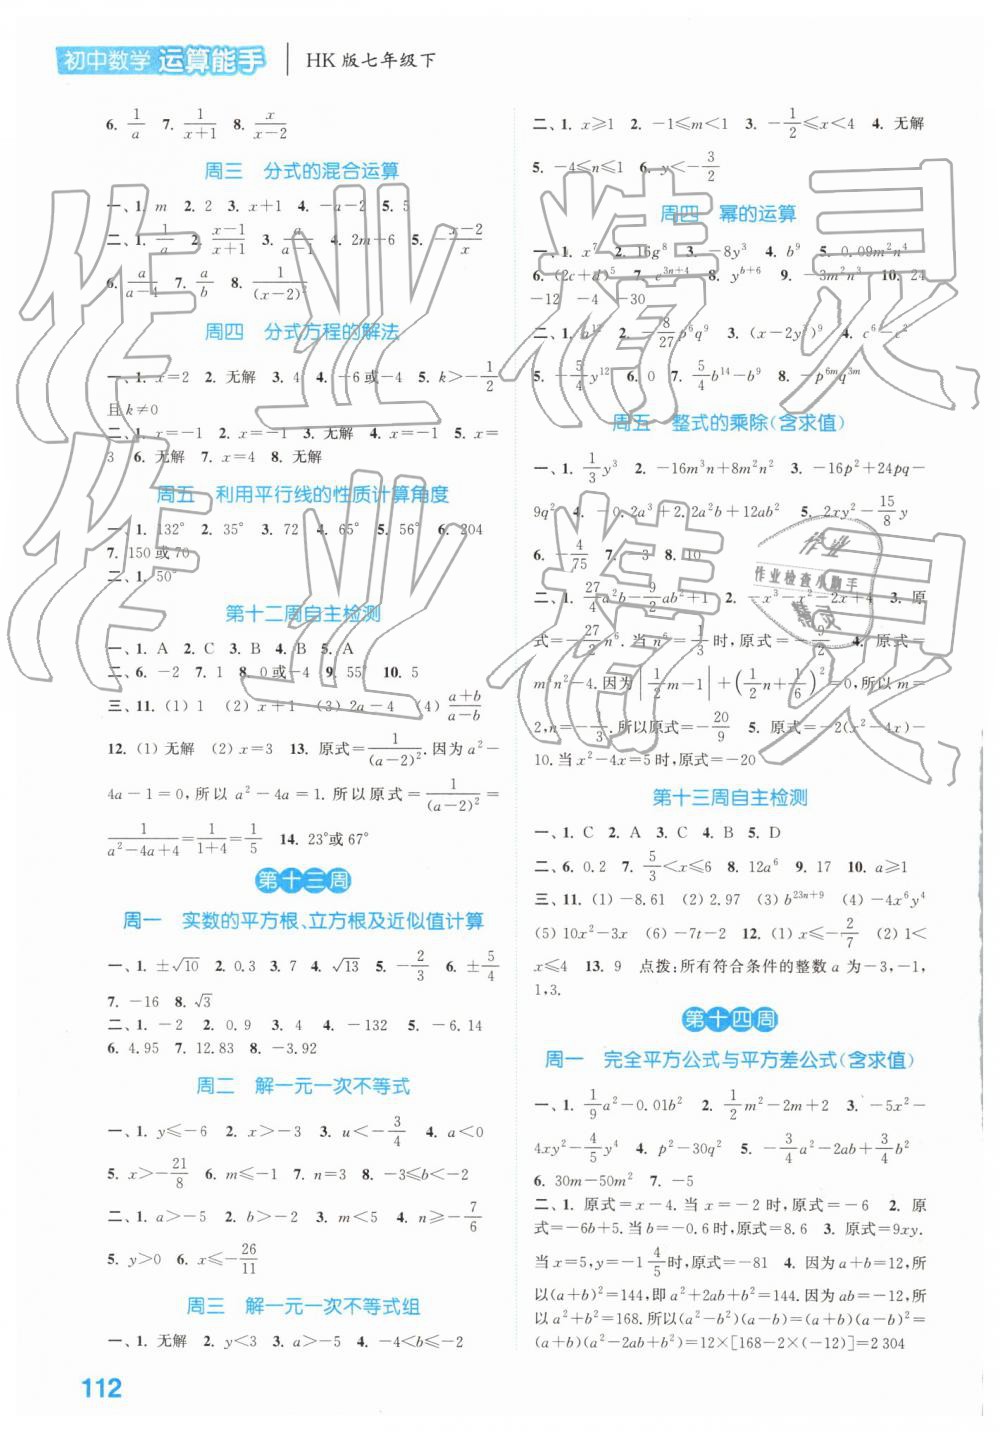 初中数学 运算能手 HK版七年级下
6. 1/a 7. 1/(x+1) 8. x/(x-2)
周三 分式的混合运算
一、1. m 2. 2 3. x+1 4. -a-2 5. 5
二、1. 1/a 2. (x-1)/(x+1) 3. a/(a-1) 4. 2m-6 5. -(x-2)/x
6. a/(a-4) 7. a/b 8. 1/(x-2)²
周四 分式方程的解法
一、1. x=2 2. 无解 3. 4 4. -6或-4 5. k>-1/2
且k≠0
二、1. x=-1 2. x=-1 3. 无解 4. x=-1 5. x=
3 6. 无解 7. x=4 8. 无解
周五 利用平行线的性质计算角度
一、1. 132° 2. 35° 3. 72 4. 65° 5. 56° 6. 204
7. 150或70
二、1. 50°
第十二周自主检测
一、1. A 2. C 3. B 4. B 5. A
二、6. -2 7. 1 8. 0或-4 9. 55° 10. 5
三、11. (1) 1 (2) x+1 (3) 2a-4 (4) (a+b)/(a-b)
12. (1) 无解 (2) x=3 13. 原式=1/(a-2)².因为a²-
4a-1=0,所以a²-4a=1.所以原式=1/(a-2)²=
1/(a²-4a+4)=1/(1+4)=1/5 14. 23°或67°
第十三周
周一 实数的平方根、立方根及近似值计算
一、1. ±√10 2. 0.3 3. 7 4. √13 5. -2/3 6. ±5/4
7. -16 8. √3
二、1. -2 2. 0.9 3. 4 4. -132 5. -6.14
6. 4.95 7. 12.83 8. -3.92
周二 解一元一次不等式
一、1. y≤-6 2. x>-3 3. u<-3/4 4. a<0
5. x>-21/8 6. m≤-1 7. n=3 8. -3≤b<-2
二、1. a>-5 2. b>-2 3. m<5 4. n≥-7/6
5. y>0 6. x≤-26/11
周三 解一元一次不等式组
一、1. 无解 2. y<3 3. a>-5 4. -4<b≤-2
112
二、1. x≥1 2. -1≤m<1 3. -1/2≤x<4 4. 无解
5. -4≤n≤1 6. y<-3/2
周四 幂的运算
一、1. x⁷ 2. 16g⁸ 3. -8y³ 4. b⁹ 5. 0.09m²n⁴
6. (2c+d)⁵ 7. c³ⁿ⁺⁴ 8. y^(b+6) 9. -3m²n³ 10. 24
-12 -4 -30
二、1. a¹² 2. -8/27 p⁶q⁹ 3. (x-2y)⁹ 4. c⁶-c²
5. -5/4 y¹² 6. 0 7. 5/4 b¹⁴-b⁹ 8. -p⁶ᵐq³ᵐ
周五 整式的乘除(含求值)
一、1. -1/3 y³ 2. -16m³n+8m²n² 3. -16p²+24pq-
9q² 4. -0.2a³+2.2a²b+12ab² 5. 2xy²-15/8 y
6. -4/75 7. -3 8. 10
二、1. 27/4 a²b-9/2 ab²+1 2. -x³-x²-2x+4 3. 原
式=-27/2 n⁶.当n⁶=1/3时,原式=-9/2 4. 原式=
m²n²-4.因为|1/2 m-1|+(1/2 n+1/6)²=0,所以m=
2,n=-1/3.所以原式=-20/9 5. 原式=-2(x²-4x)-
10.当x²-4x=5时,原式=-20
第十三周自主检测
一、1. C 2. A 3. C 4. B 5. D
二、6. 0.2 7. 5/3<x≤6 8. 12a⁶ 9. 17 10. a≥1
三、11. (1) -8.61 (2) 2.97 (3) b²³ⁿ⁺⁹ (4) -4x⁶y⁴
(5) 10x²-3x (6) -7t-2 12. (1) x≤-2/7 (2) 1<
x≤4 13. 9 点拨:所有符合条件的整数a为-3,-1,
1,3.
第十四周
周一 完全平方公式与平方差公式(含求值)
一、1. 1/9 a²-0.01b² 2. 1/2 m²-2m+2 3. -5x²-
4xy²-4/5 y⁴ 4. p²-30q² 5. -3/4 a²-2ab+3/4 b²
6. 30m-50m² 7. -5
二、1. 原式=x-4.当x=-2时,原式=-6 2. 原
式=-6b+5.当b=-0.6时,原式=8.6 3. 原式=9xy.
当x=5,y=-1 4/5时,原式=-81 4. 因为a+b=12,所
以(a+b)²=144,即a²+2ab+b²=144.因为ab=-12,所
以a²+b²=168.所以(a²-b²)(a-b)=(a+b)(a-b)²=
(a+b)(a²-2ab+b²)=12×[168-2×(-12)]=2 304
作业精灵
作业精灵
作业
作业检查小助手
精灵